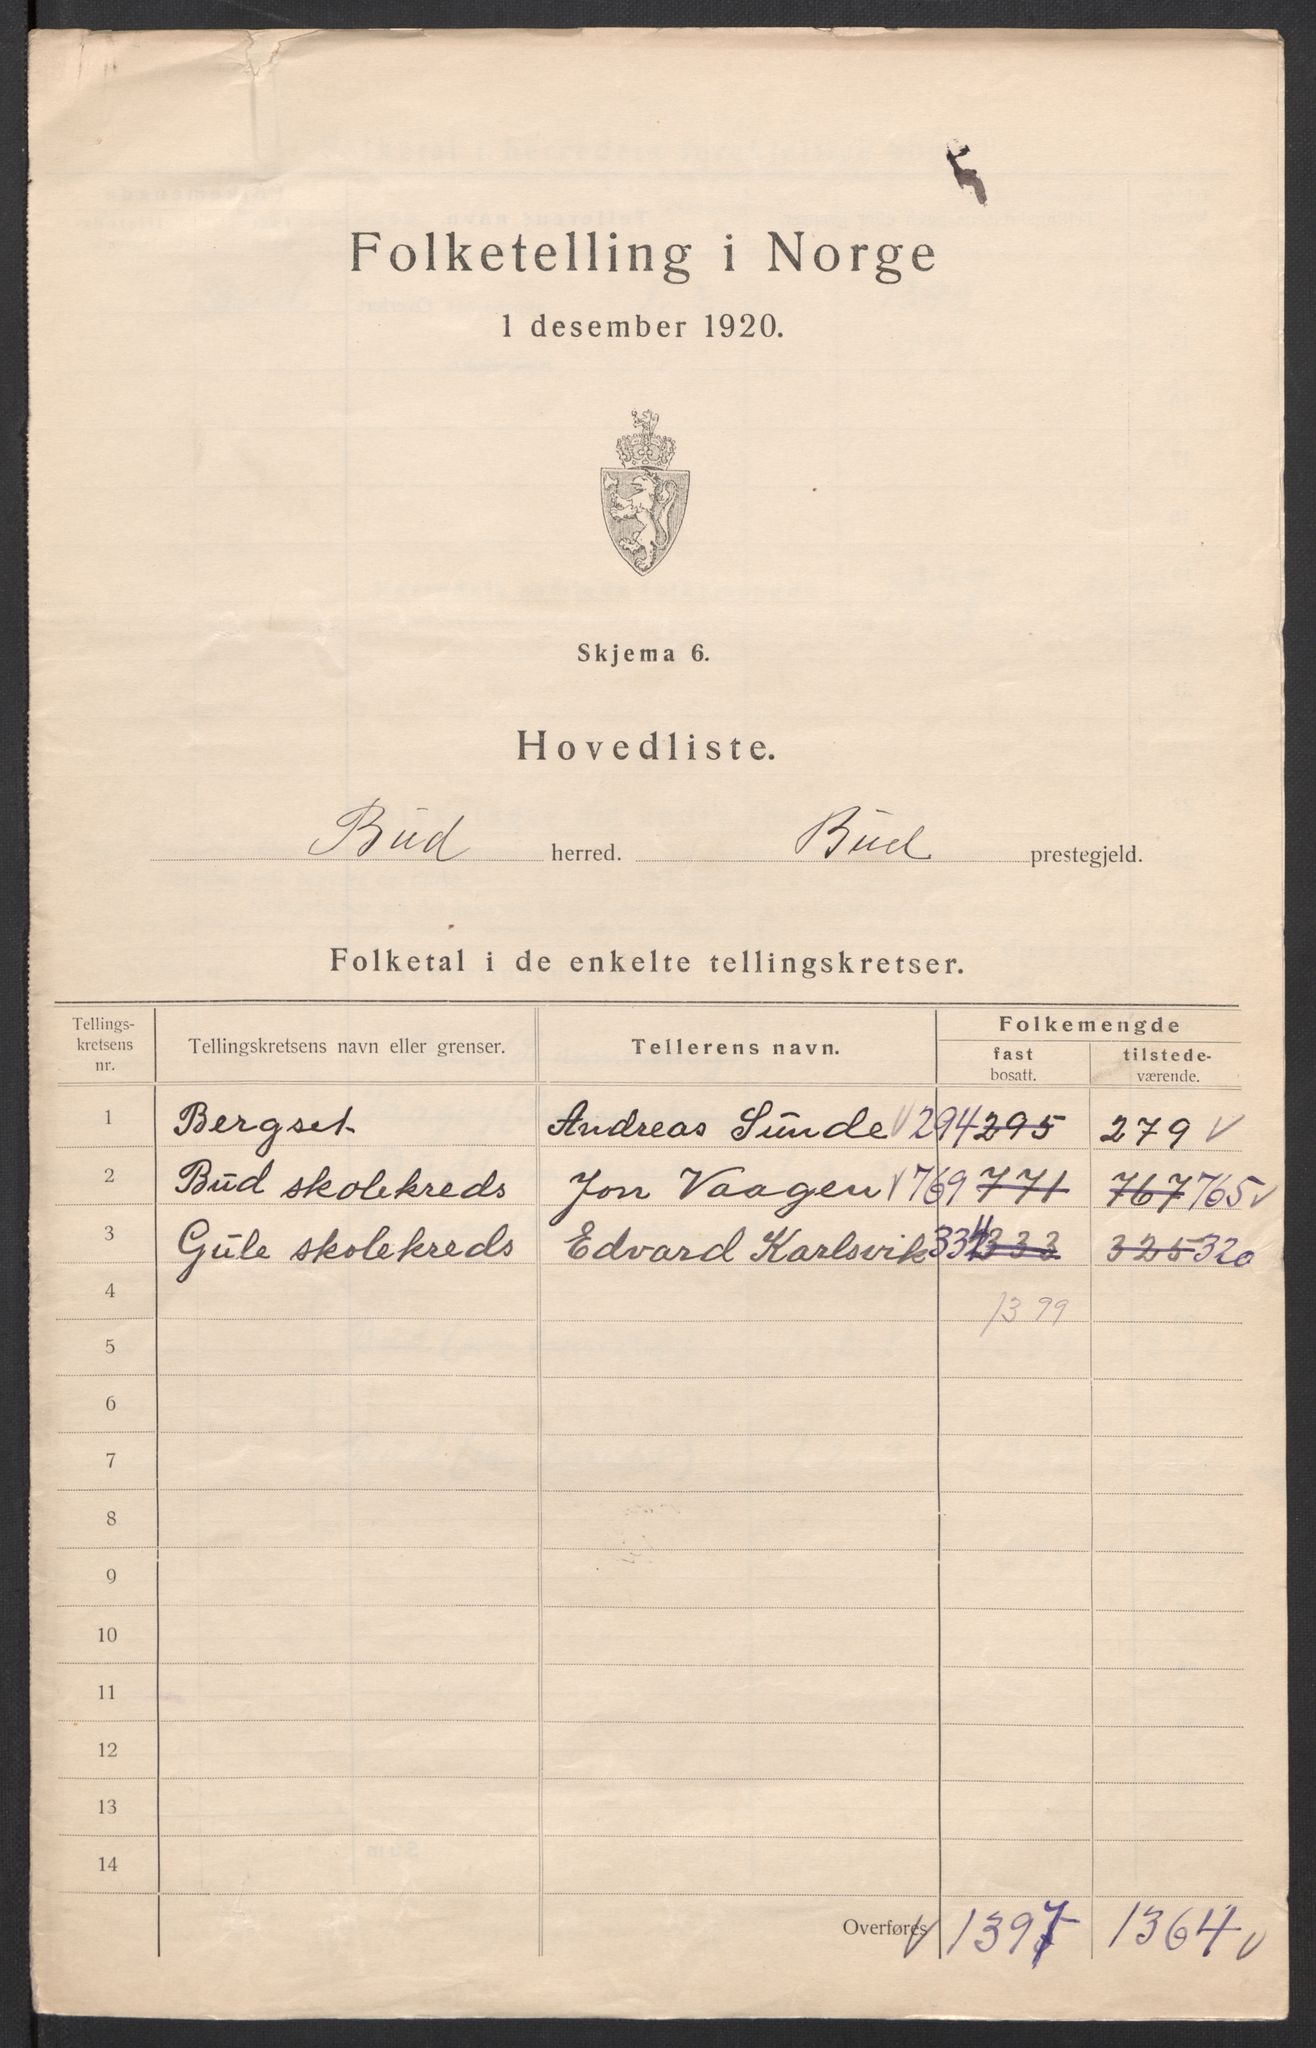 Folketelling i Norge
1 desember 1920.
Skjema 6.
Hovedliste.
Būd herred. Būd prestegjeld.
Folketal i de enkelte tellingskretser.
Tellings-kretsens nr. Tellingskretsens navn eller grenser. Tellerens navn. Folkemengde
fast bosatt. tilstede-værende.
1 Bergset Andreas Sūnde √ 294 295 279 √
2 Būd skolekreds Jon Vaagen √ 769 771 767 765 √
3 Gūle skolekreds Edvard Karlsvik 334 333 325 320
4 1399
5
6
7
8
9
10
11
12
13
14
Overføres √ 1397 1364 √